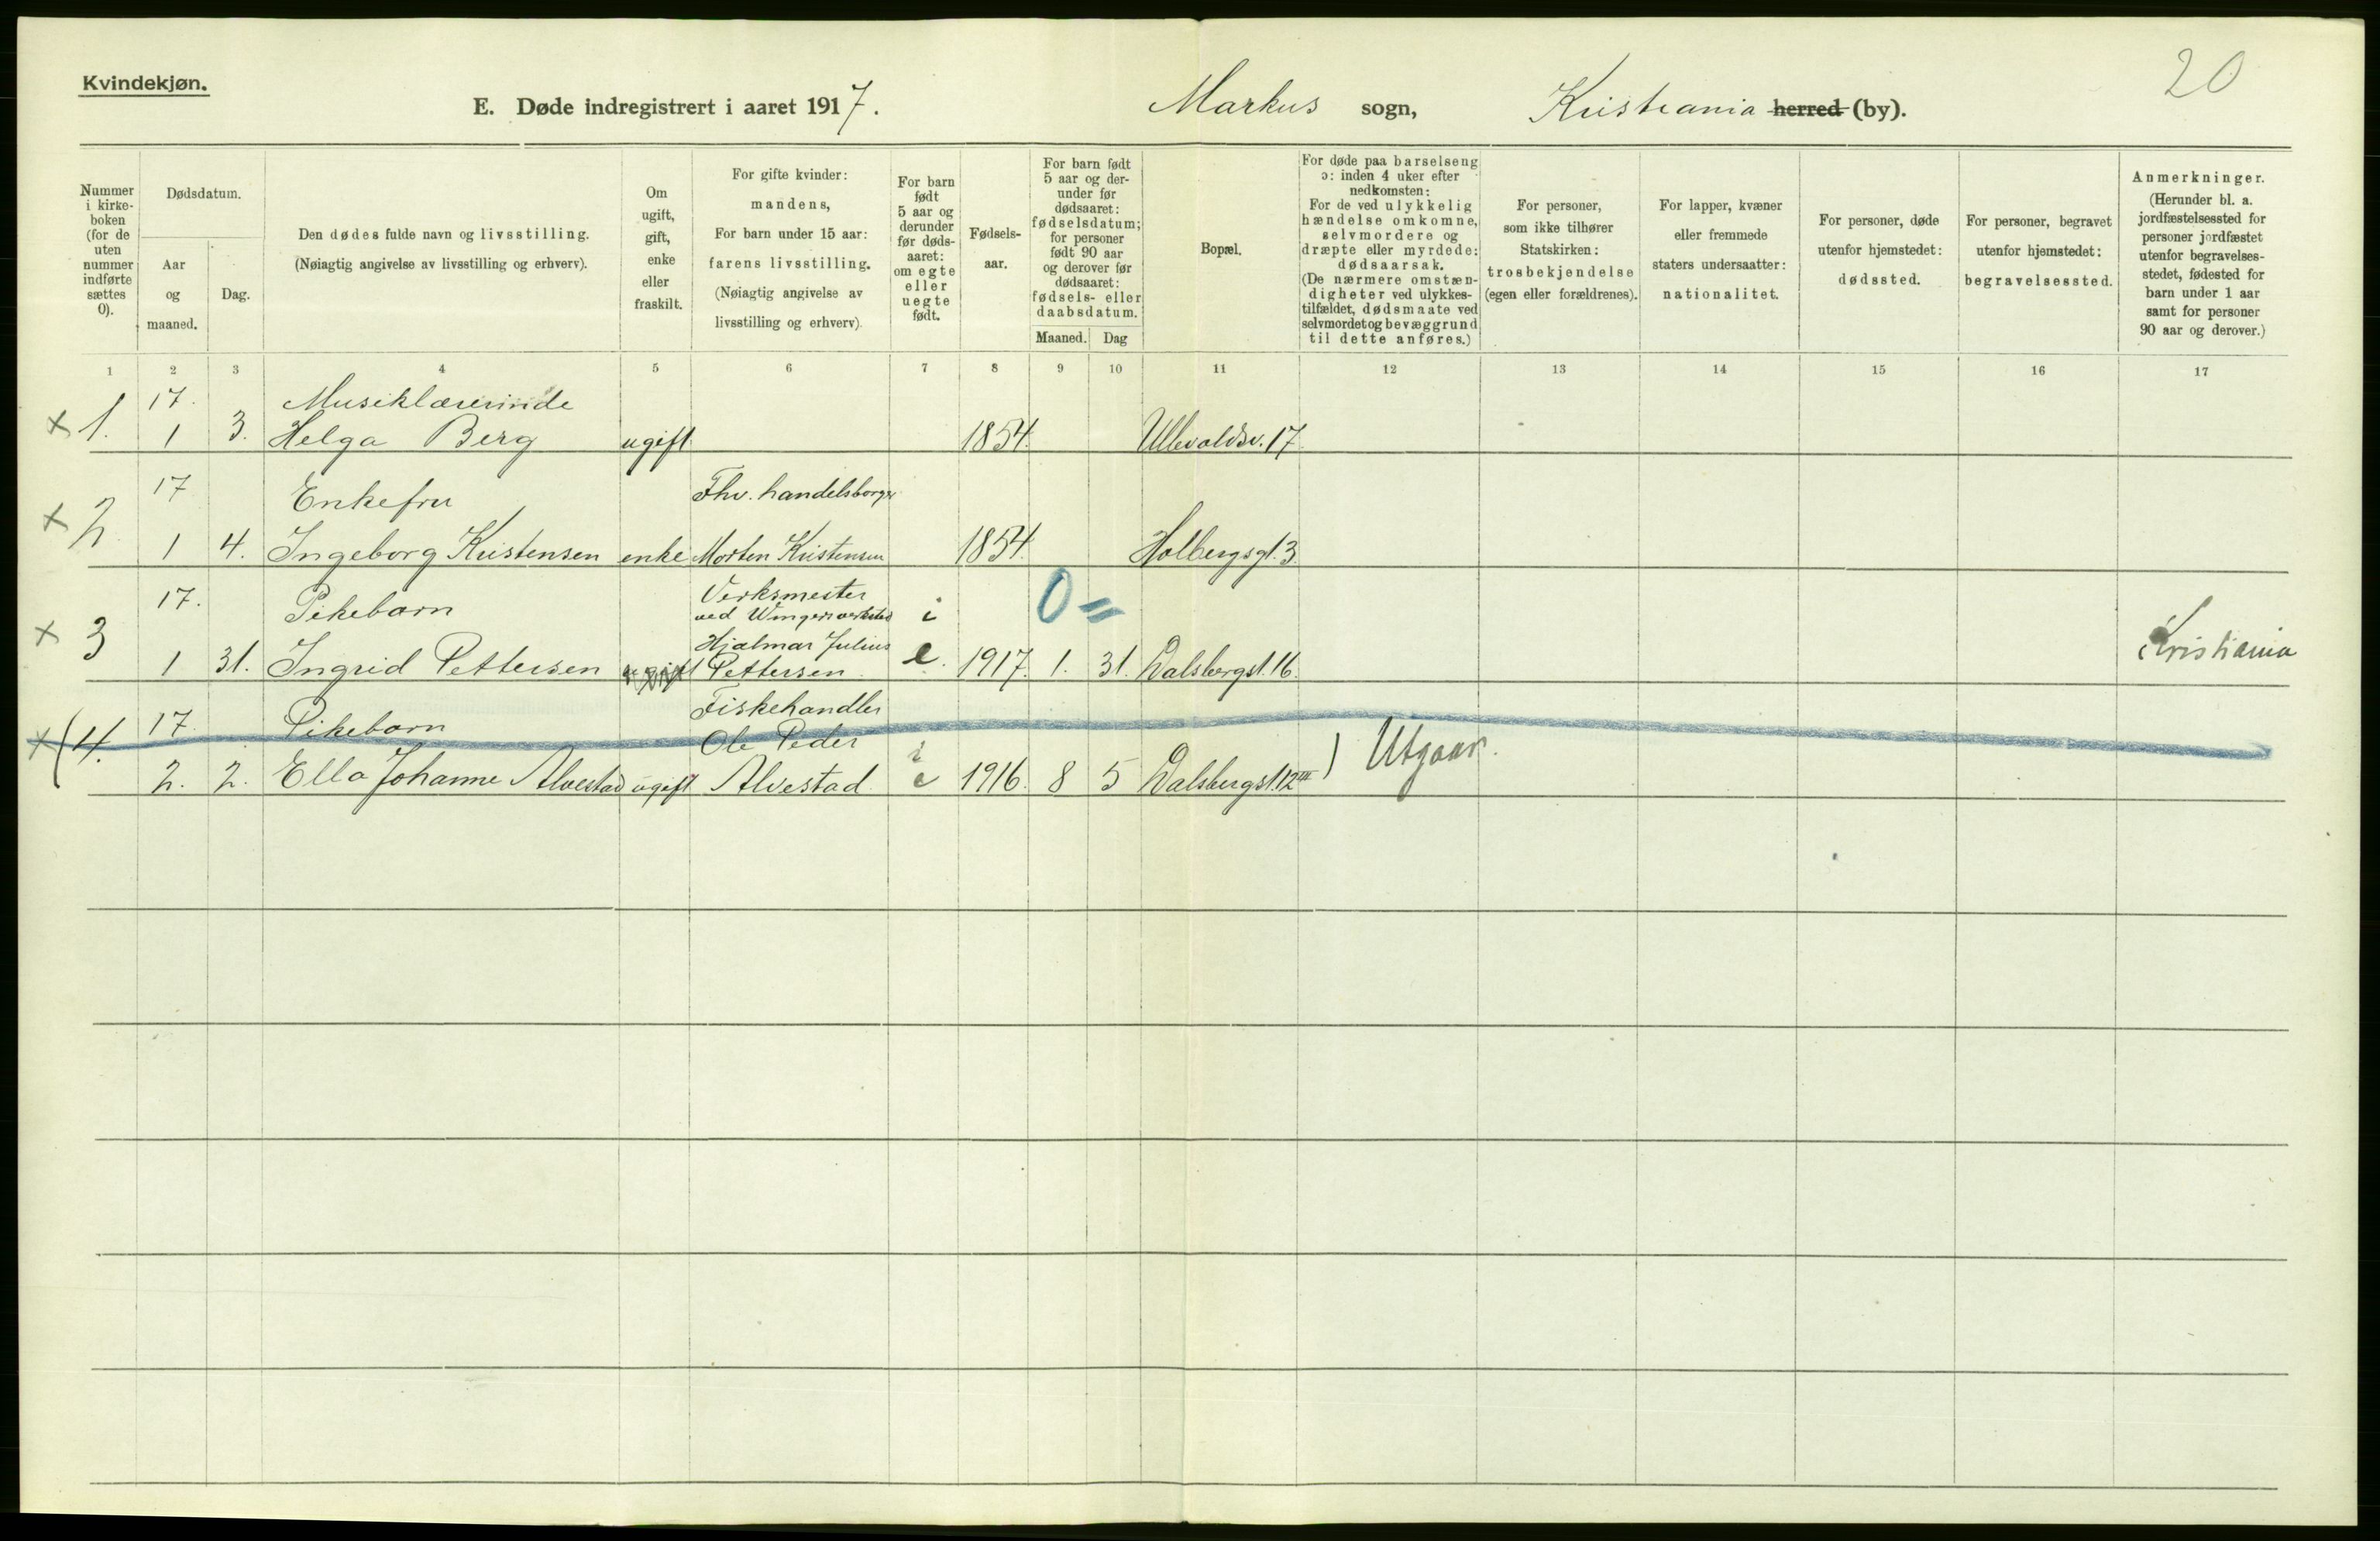 Kvindekjøn.
20
E. Døde indregistrert i aaret 1917.
Markus sogn,
Kristiania herred (by).
Nummer i kirke-
boken
(for de
uten
nummer
indførte
sættes
0).
Dødsdatum.
Aar
og
maaned.
Dag.
Den dødes fulde navn og livsstilling.
(Nøiagtig angivelse av livsstilling og erhverv).
Om
ugift,
gift,
enke
eller
fraskilt.
For gifte kvinder:
mandens,
For barn under 15 aar:
farens livsstilling.
(Nøiagtig angivelse av
livsstilling og erhverv).
For barn
født
5 aar og
derunder
før døds-
aaret:
om egte
eller
uegte
født.
Fødsels-
aar.
For barn født
5 aar og der-
under før
dødsaaret:
fødselsdatum;
for personer
født 90 aar
og derover før
dødsaaret:
fødsels- eller
daabsdatum.
Maaned. Dag
Bopæl.
For døde paa barselseng
ɔ: inden 4 uker efter
nedkomsten:
For de ved ulykkelig
hændelse omkomne,
selvmordere og
dræpte eller myrdede:
dødsaarsak.
(De nærmere omstæn-
digheter ved ulykkes-
tilfældet, dødsmaate ved
selvmordet og bevæggrund
til dette anføres.)
For personer,
som ikke tilhører
Statskirken:
trosbekjendelse
(egen eller forældrenes).
For lapper, kvæner
eller fremmede
staters undersaatter:
nationalitet.
For personer, døde
utenfor hjemstedet:
dødssted.
For personer, begravet
utenfor hjemstedet:
begravelsessted.
Anmerkninger.
(Herunder bl. a.
jordfæstelsessted for
personer jordfæstet
utenfor begravelses-
stedet, fødested for
barn under 1 aar
samt for personer
90 aar og derover.)
1 2 3 4 5 6 7 8 9 10 11 12 13 14 15 16 17
17. Musiklærerinde
x 1. 1 3. Helga Berg ugift 1854. Ullevoldsv. 17
17 Enkefru Fhv. handelsborger
x 2. 1 4. Ingeborg Kristensen enke Morten Kristensen 1854. Holbergsgt. 3.
17. Pikebarn Verksmester
ved Wingers verksted i 0 =
Hjalmar Julius
x 3 1 31. Ingrid Pettersen ugift Pettersen e. 1917. 1. 31. Dalsbergst. 16. Kristiania
17. Pikebarn Fiskehandler
Ole Peder
x (4. 2. 2. Ella Johanne Alvestad ugift Alvestad i e 1916. 8 5 Dalsbergst. 12 III ) Utgaar.